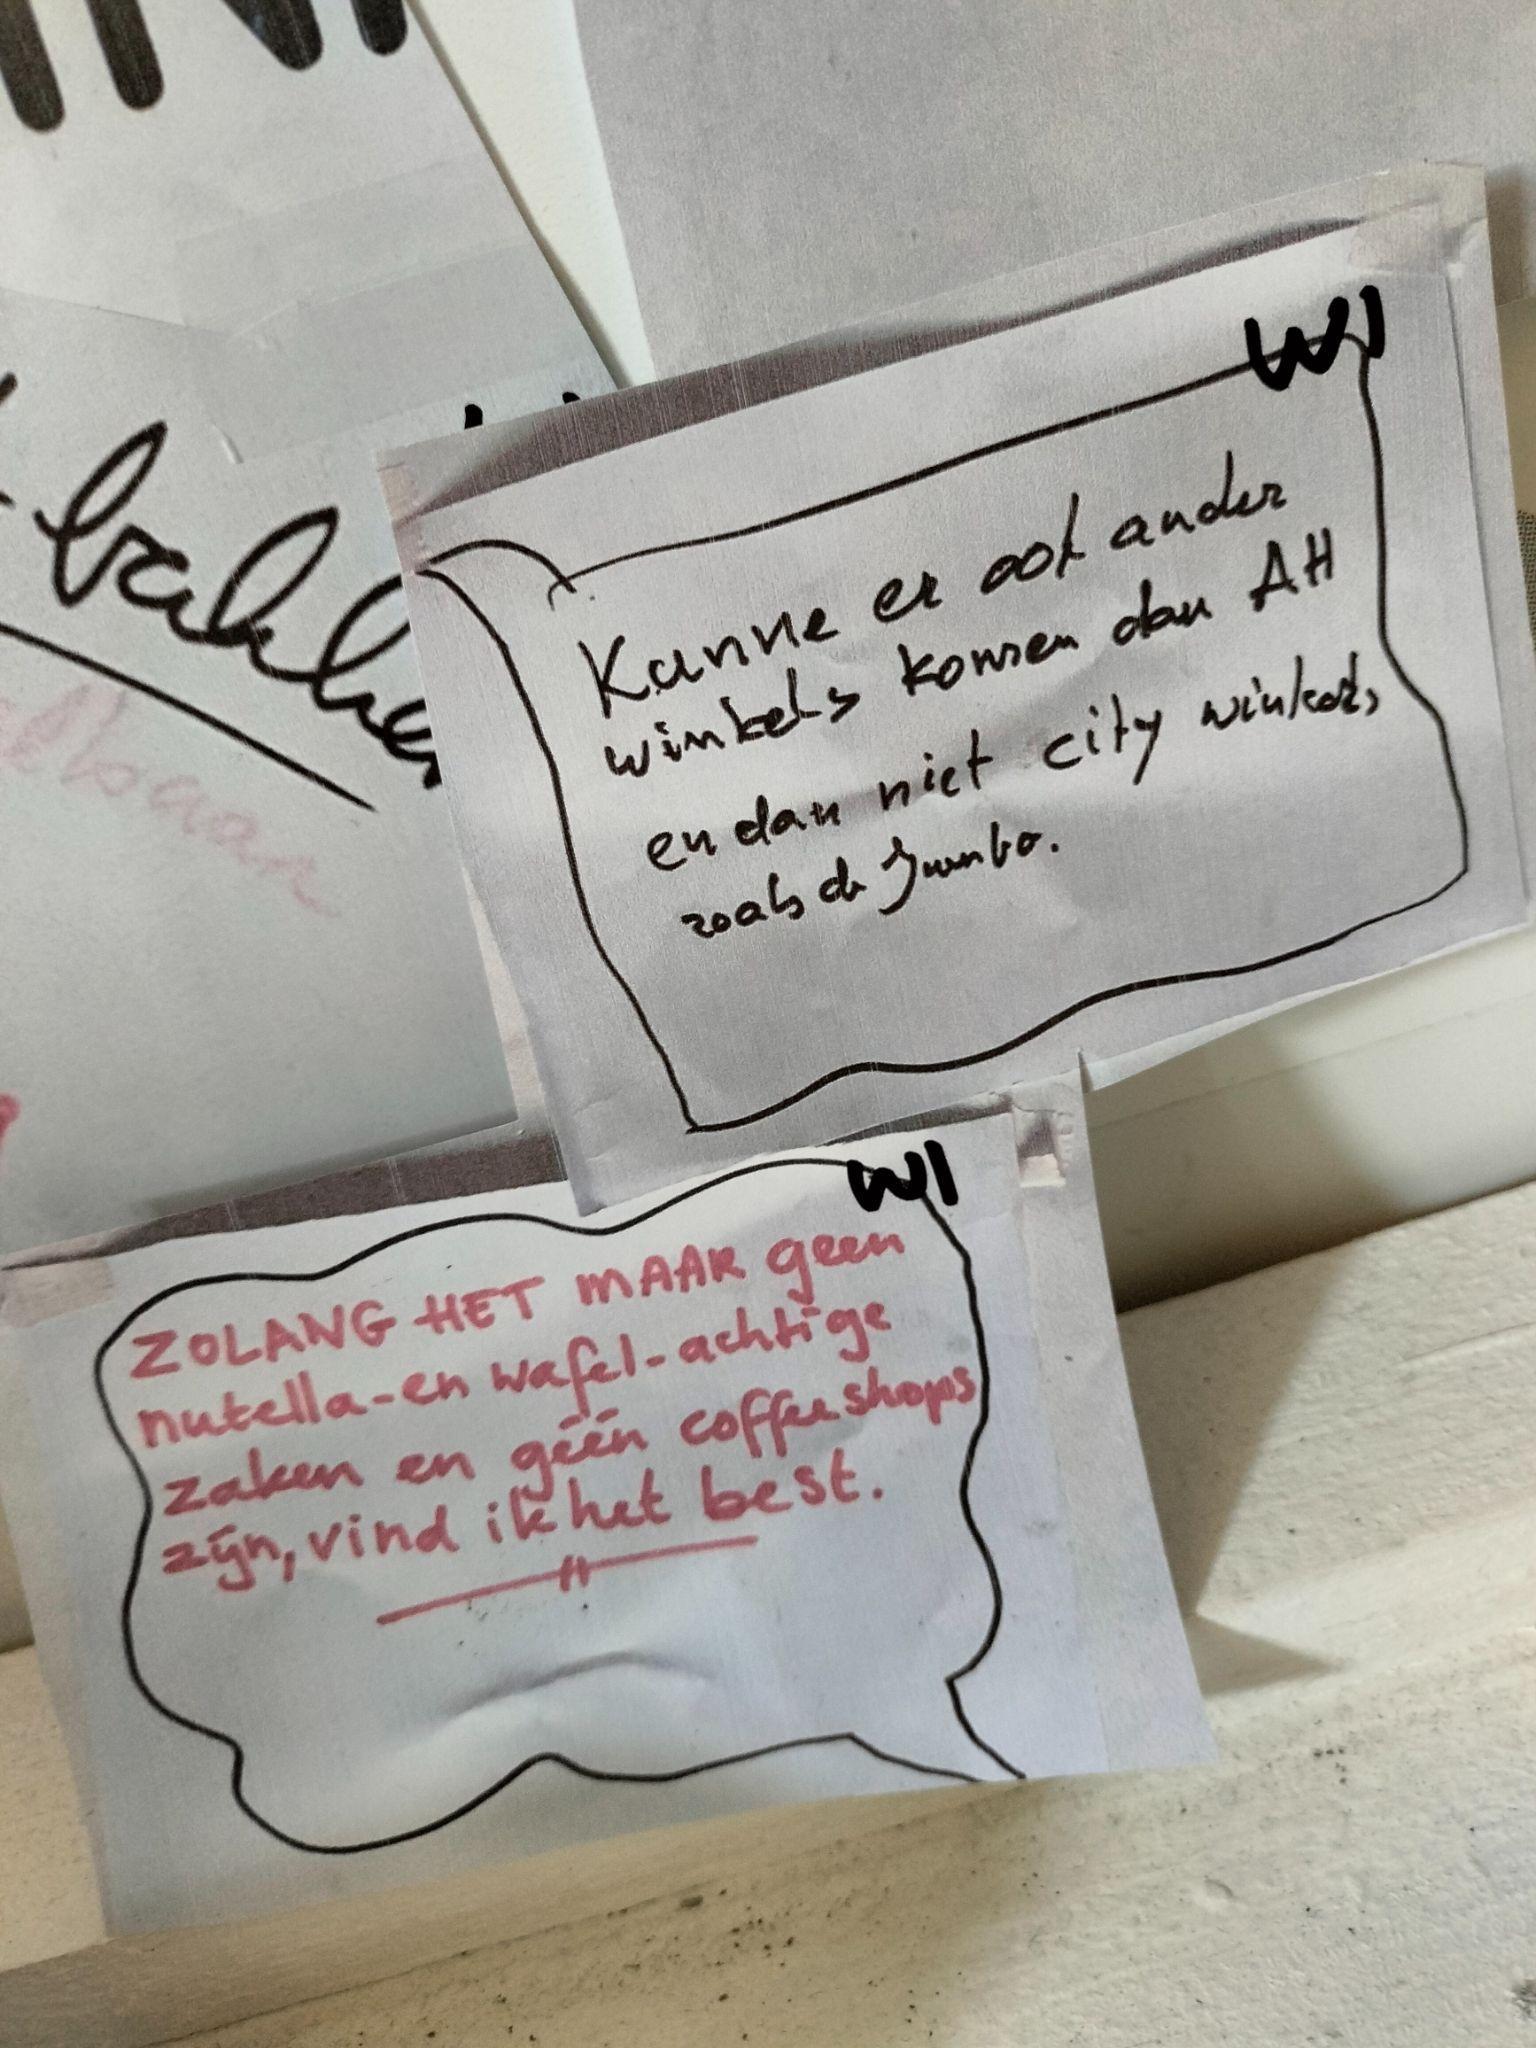 WI
Kunne er ook ander
winkels komen dan AH
en dan niet city winkels,
zoals de Jumbo.
WI
ZOLANG HET MAAR geen
nutella-en wafel-achtige
zaken en géén coffeeshops
zijn, vind ik het best.